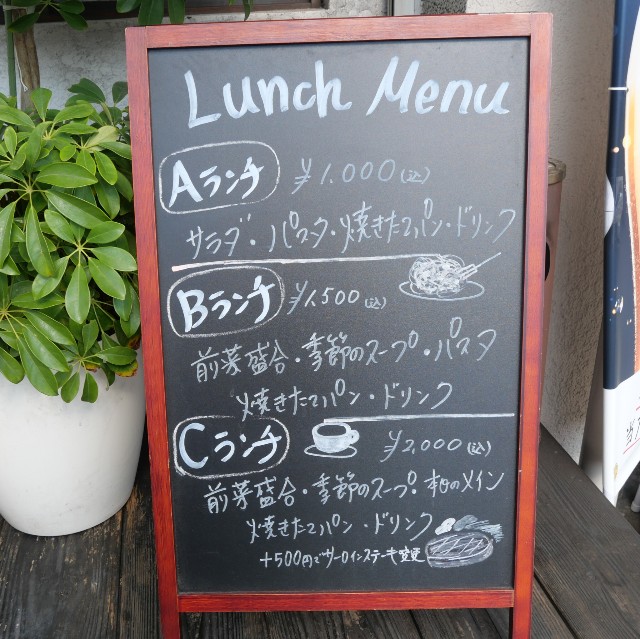 Lunch Menu
Aランチ ¥1.000(込)
サラダ・パスタ・焼きたてパン・ドリンク
Bランチ ¥1.500(込)
前菜盛合・季節のスープ・パスタ
焼きたてパン・ドリンク
Cランチ ¥2,000(込)
前菜盛合・季節のスープ・本日のメイン
焼きたてパン・ドリンク
+500円でサーロインステーキ変更